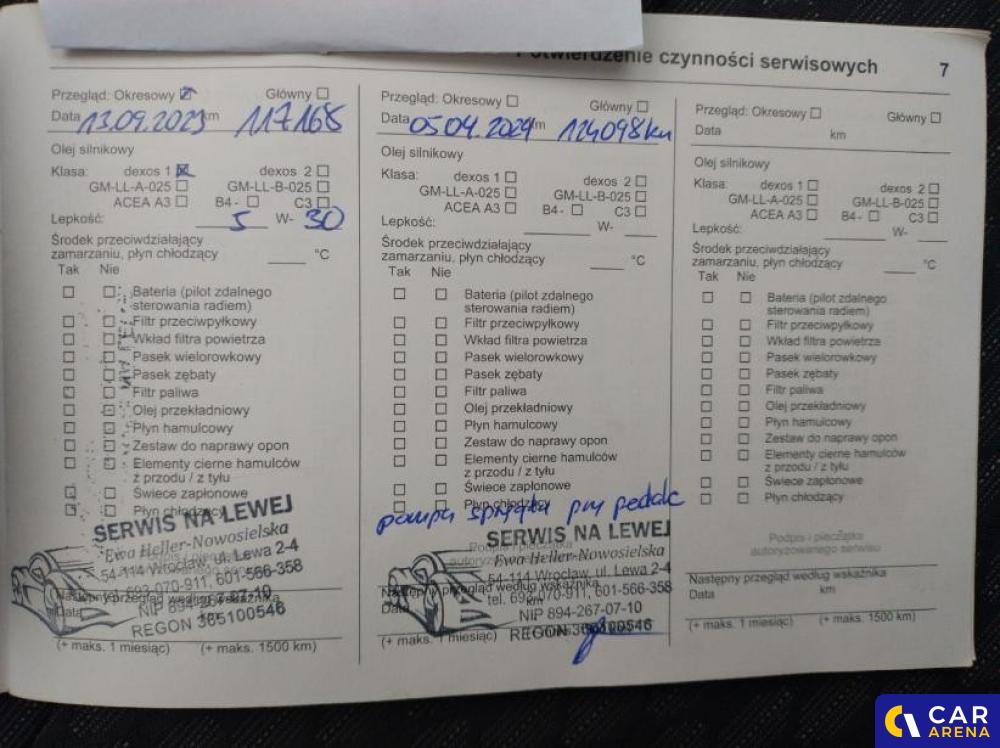 Potwierdzenie czynności serwisowych 7
Przegląd: Okresowy Główny
Data 13.09.2023 km 117168
Olej silnikowy
Klasa: dexos 1 dexos 2
GM-LL-A-025 GM-LL-B-025
ACEA A3 B4 - C3
Lepkość: 5 W- 30
Środek przeciwdziałający
zamarzaniu, płyn chłodzący °C
Tak Nie
Bateria (pilot zdalnego
sterowania radiem)
Filtr przeciwpyłkowy
Wkład filtra powietrza
Pasek wielorowkowy
Pasek zębaty
Filtr paliwa
Olej przekładniowy
Płyn hamulcowy
Zestaw do naprawy opon
Elementy cierne hamulców
z przodu / z tyłu
Świece zapłonowe
Płyn chłodzący
SERWIS NA LEWEJ
Ewa Heller-Nowosielska
54-114 Wrocław, ul. Lewa 2-4
693-070-911, 601-566-358
Następny przegląd według wskaźnika
NIP 894-267-07-10
Data
REGON 365100546
(+ maks. 1 miesiąc) (+ maks. 1500 km)
Przegląd: Okresowy Główny
Data 05 04. 2024 km 124098km
Olej silnikowy
Klasa: dexos 1 dexos 2
GM-LL-A-025 GM-LL-B-025
ACEA A3 B4 - C3
Lepkość: W-
Środek przeciwdziałający
zamarzaniu, płyn chłodzący °C
Tak Nie
Bateria (pilot zdalnego
sterowania radiem)
Filtr przeciwpyłkowy
Wkład filtra powietrza
Pasek wielorowkowy
Pasek zębaty
Filtr paliwa
Olej przekładniowy
Płyn hamulcowy
Zestaw do naprawy opon
Elementy cierne hamulców
z przodu / z tyłu
Świece zapłonowe
Płyn chłodzący
pompa sprzęgła przy pedale
SERWIS NA LEWEJ
Podpis i pieczątka
Ewa Heller-Nowosielska
54-114 Wrocław, ul. Lewa 2-4
Następny przegląd według wskaźnika
tel. 693-070-911, 601-566-358
Data km
NIP 894-267-07-10
REGON 365100546
(+ maks. 1 miesiąc)
Przegląd: Okresowy Główny
Data km
Olej silnikowy
Klasa: dexos 1 dexos 2
GM-LL-A-025 GM-LL-B-025
ACEA A3 B4 - C3
Lepkość: W-
Środek przeciwdziałający
zamarzaniu, płyn chłodzący °C
Tak Nie
Bateria (pilot zdalnego
sterowania radiem)
Filtr przeciwpyłkowy
Wkład filtra powietrza
Pasek wielorowkowy
Pasek zębaty
Filtr paliwa
Olej przekładniowy
Płyn hamulcowy
Zestaw do naprawy opon
Elementy cierne hamulców
z przodu / z tyłu
Świece zapłonowe
Płyn chłodzący
Podpis i pieczątka
autoryzowanego serwisu
Następny przegląd według wskaźnika
Data km
(+ maks. 1 miesiąc) (+ maks. 1500 km)
CAR
ARENA